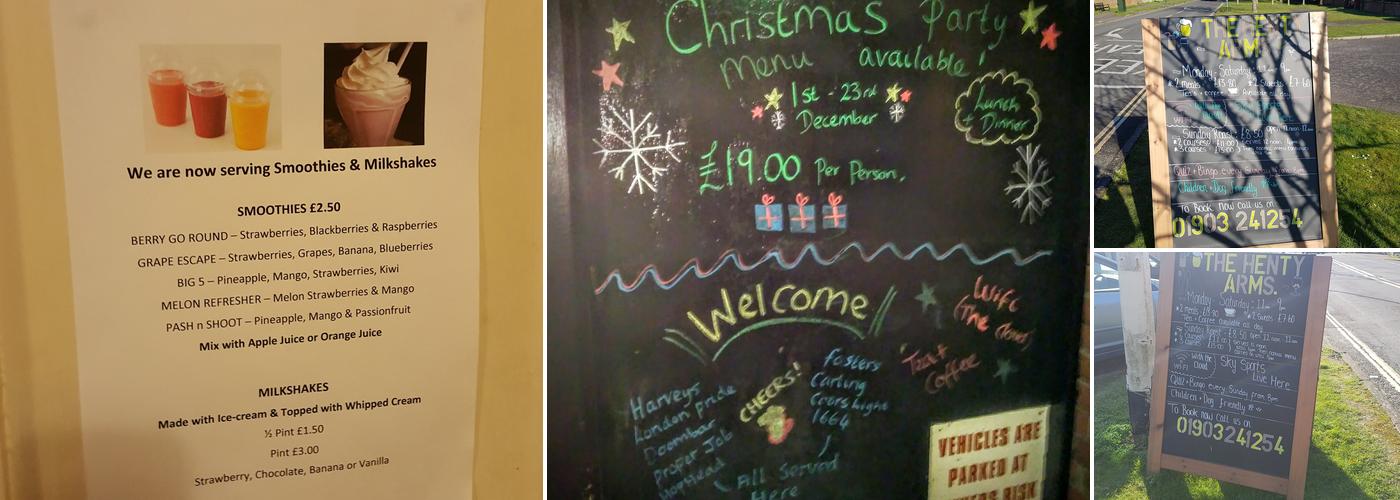 We are now serving Smoothies & Milkshakes
SMOOTHIES £2.50
BERRY GO ROUND – Strawberries, Blackberries & Raspberries
GRAPE ESCAPE – Strawberries, Grapes, Banana, Blueberries
BIG 5 – Pineapple, Mango, Strawberries, Kiwi
MELON REFRESHER – Melon Strawberries & Mango
PASH n SHOOT – Pineapple, Mango & Passionfruit
Mix with Apple Juice or Orange Juice
MILKSHAKES
Made with Ice-cream & Topped with Whipped Cream
½ Pint £1.50
Pint £3.00
Strawberry, Chocolate, Banana or Vanilla
Christmas Party
menu available!
1st - 23rd
December
Lunch
+ Dinner
£19.00 Per Person.
Welcome
Wifi
(The cloud)
Tea +
Coffee
CHEERS!
Harveys
London Pride
Doombar
Proper Job
Fosters
Carling
1664
All Served
Here
VEHICLES ARE
PARKED AT
RISK
THE
ARMS
Monday - Saturday
*2 meals £13.80 *2 Sweets £7.60
Teas + coffee Available all day
Sunday Roast £8.50 open 12 noon
*2 courses
*3 courses
Quiz + Bingo every Sunday
Children + Dog friendly
To Book Now call us on
01903 241254
THE HENTY
ARMS.
Monday - Saturday 11am 9pm
*2 meals *2 Sweets £7.60
Tea + Coffee available all day
Sunday Roast
*2 courses
*3 courses
WiFi with the
Cloud
Sky Sports
Live Here
Quiz + Bingo every Sunday from 8pm
Children + Dog friendly
To Book now call us on
01903 241254